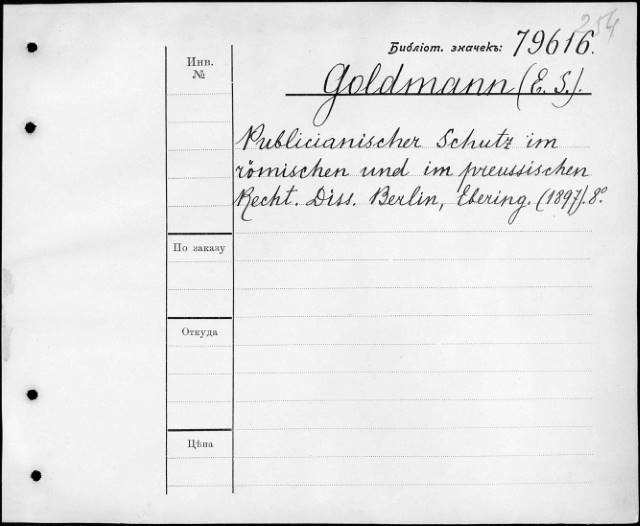 254
Библіот. значекъ: 79616.
Инв.
№
Goldmann (E. S.).
Publicianischer Schutz im
römischen und im preussischen
Recht. Diss. Berlin, Ebering. (1897). 8°
По заказу
Откуда
Цѣна